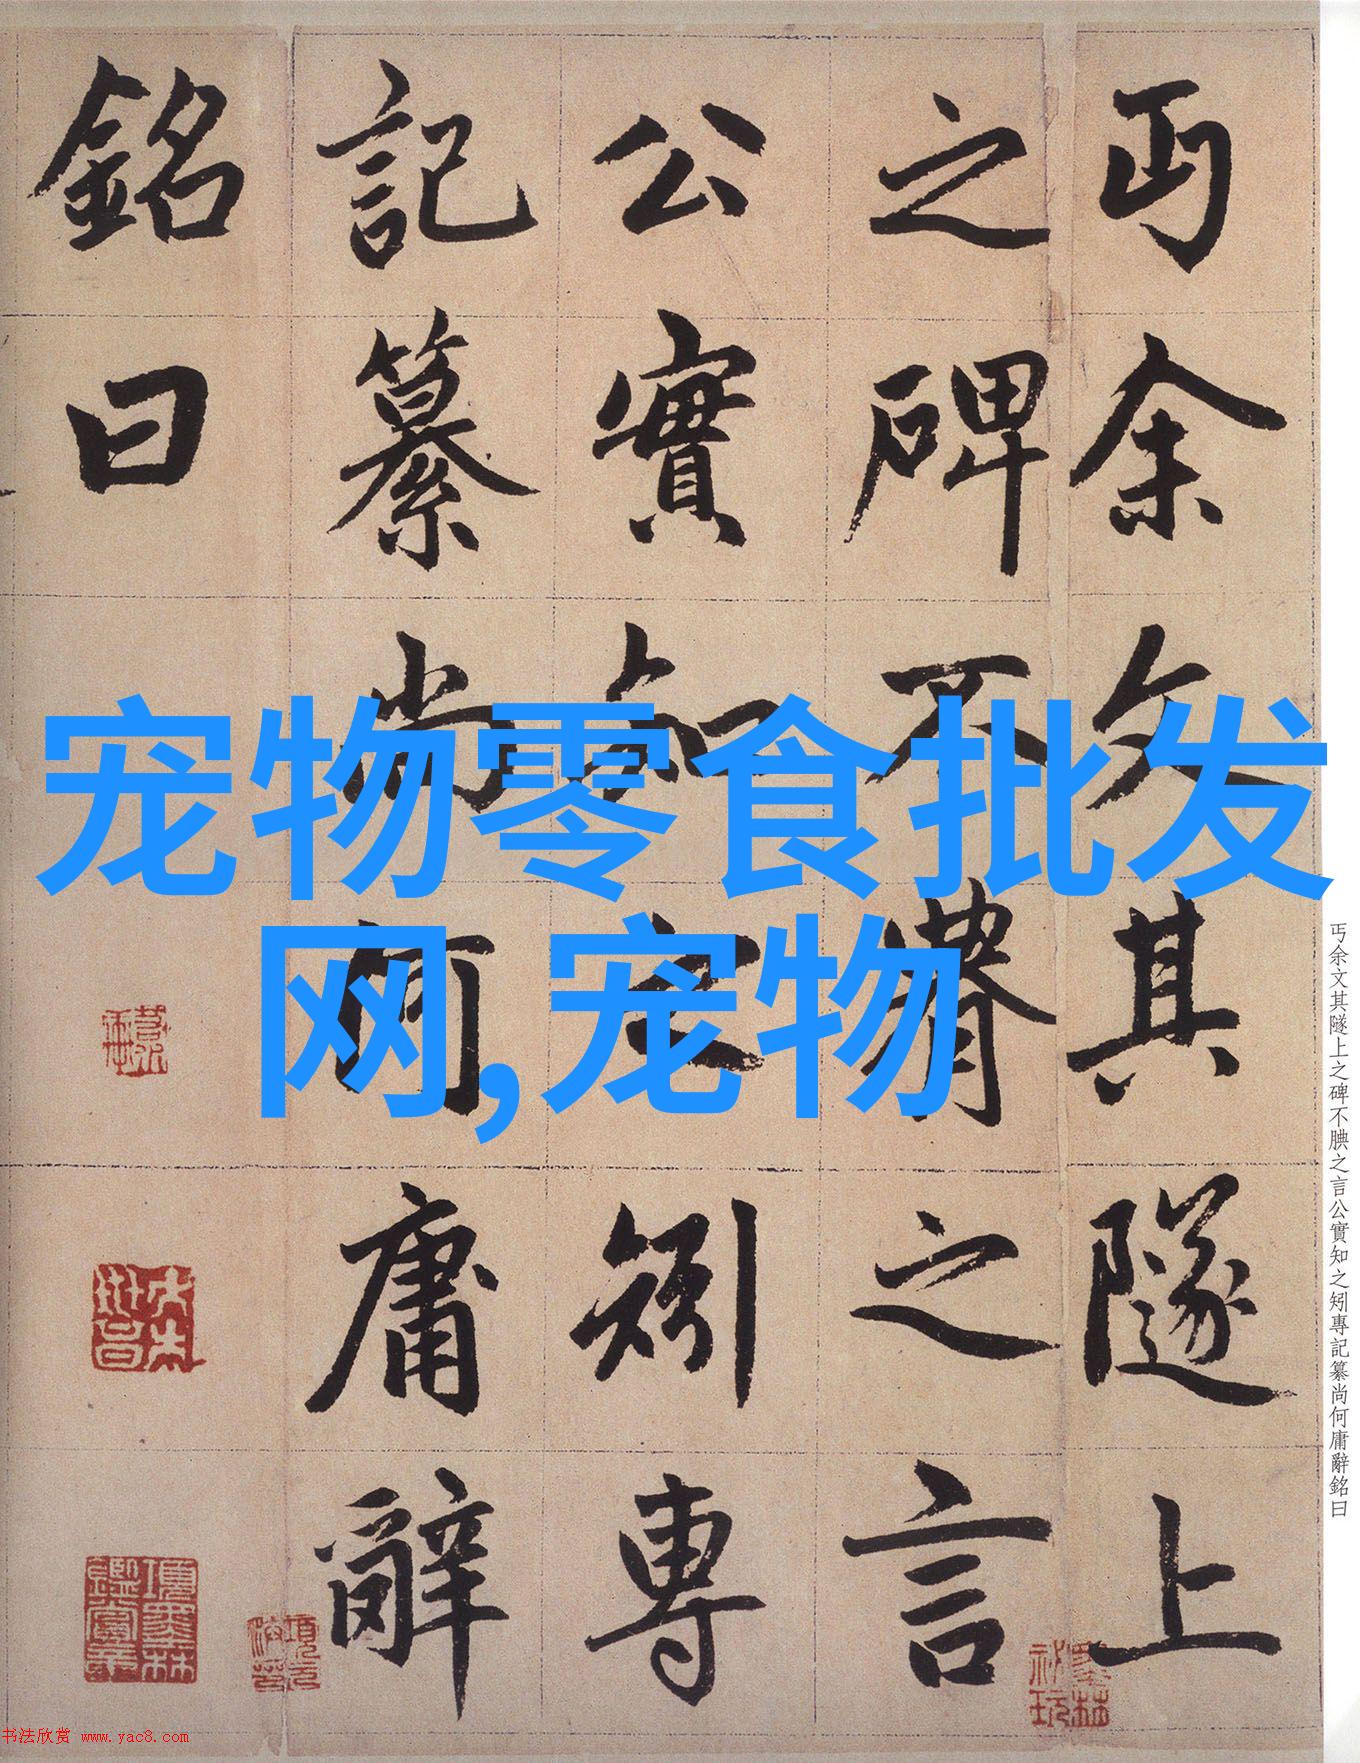 丐余文其隧上
之碑不腆之言
公實知之矧專
記纂尚何庸辭
銘曰
宠物零食批发
网,宠物
丐余文其隧上之碑不腆之言公實知之矧專記纂尚何庸辭銘曰
項墨林鑑賞章
书法欣赏 www.yac8.com